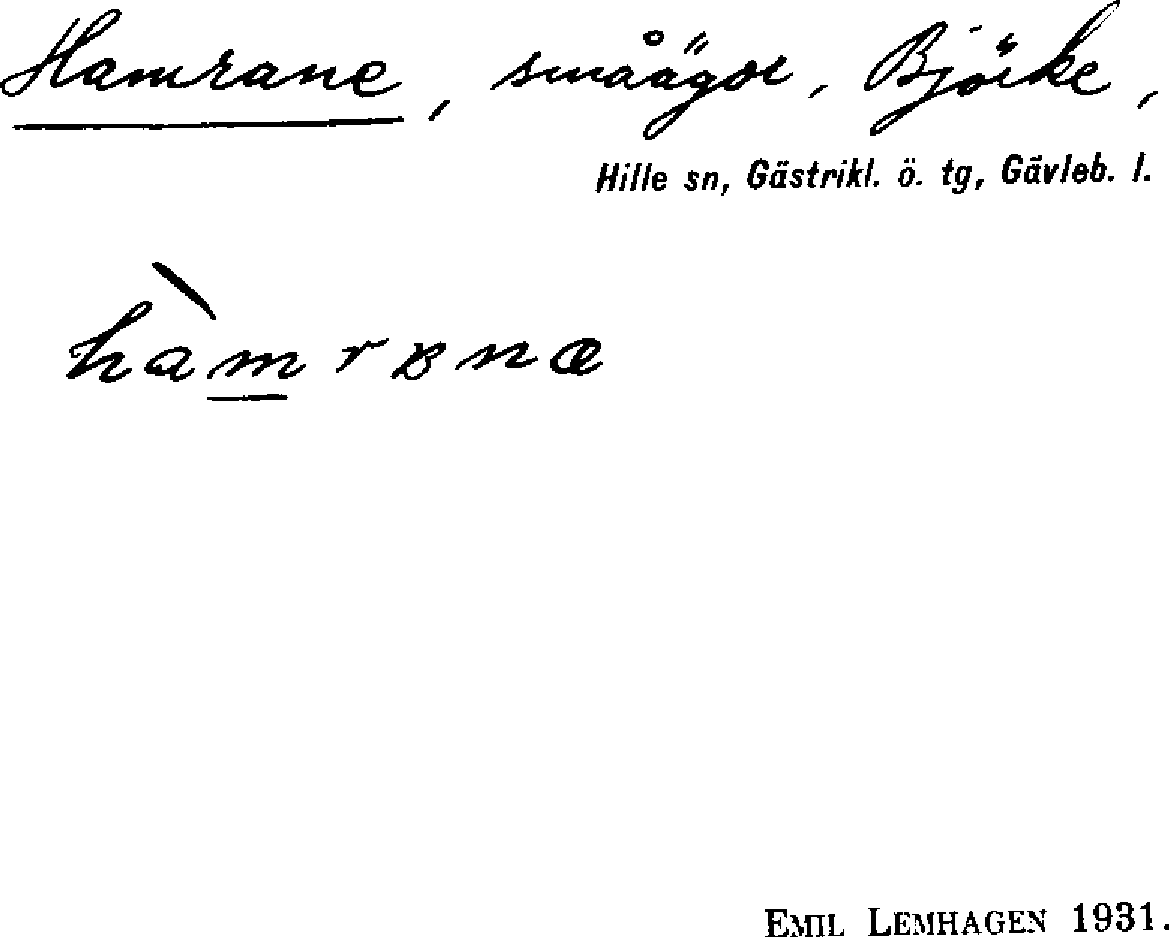 Hamrane, småägor, Björke,
Hille sn, Gästrikl. ö. tg, Gävleb. l.
hàmrɐnæ
EMIL LEMHAGEN 1931.